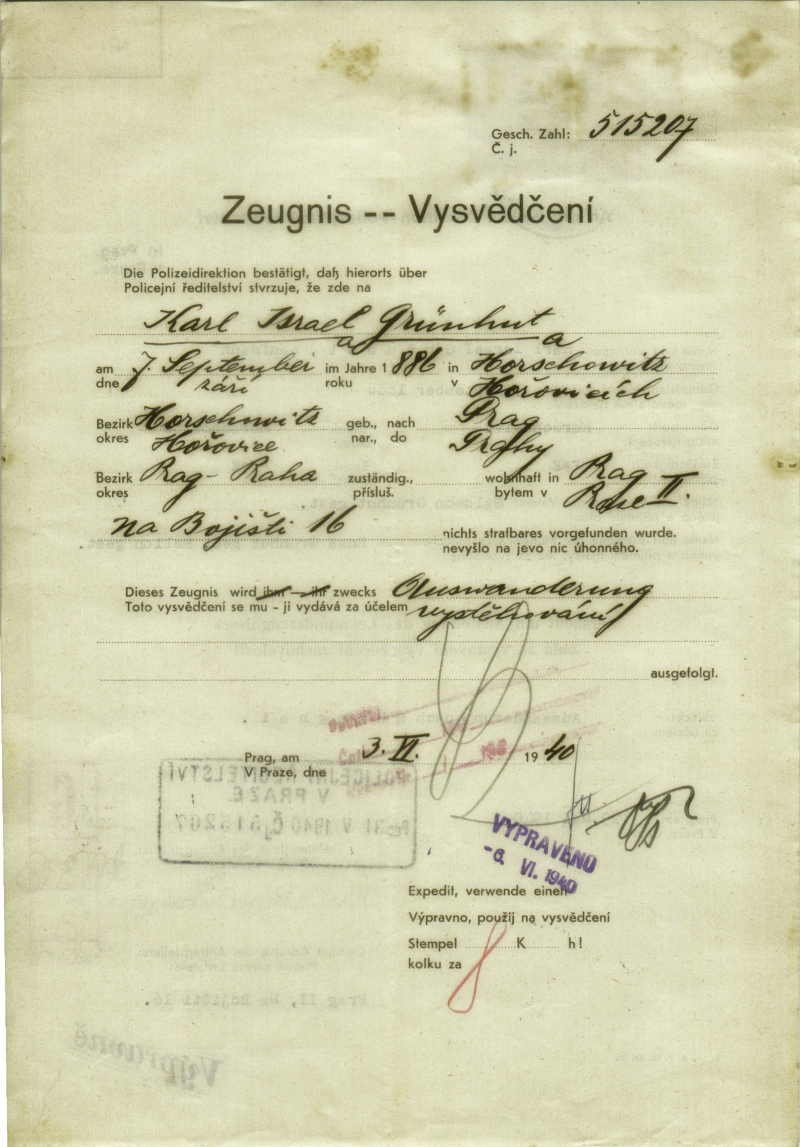 Gesch. Zahl: 515207
Č. j.
Zeugnis -- Vysvědčení
Die Polizeidirektion bestätigt, daß hierorts über
Policejní ředitelství stvrzuje, že zde na
Karl Israel Grünhut
a a
am 7. September im Jahre 1886 in Horschowitz
dne září roku v Hořovicích
Bezirk Horschowitz geb., nach Prag
okres Hořovice nar., do Prahy
Bezirk Prag - Praha zuständig., wohnhaft in Prag
okres přísluš. bytem v Praze II.
na Bojišti 16 nichts strafbares vorgefunden wurde.
nevyšlo na jevo nic úhonného.
Dieses Zeugnis wird ihm - ihr zwecks Auswanderung
Toto vysvědčení se mu - ji vydává za účelem vystěhování
ausgefolgt.
Prag, am 3. VI. 1940
V Praze, dne
POLICEJNÍ ŘEDITELSTVÍ
V PRAZE
31 V 1940 Čj 515207
VYPRAVENO
-6. VI. 1940
Expedit, verwende einen
Výpravno, použij na vysvědčení
Stempel K h!
kolku za 8
Prag II, Na Bojišti 16.
Výpravně